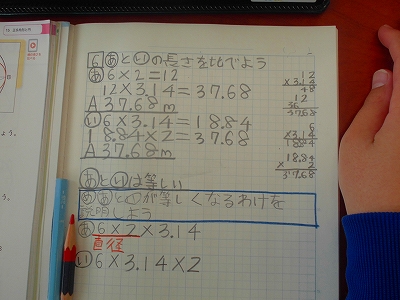 6 あといの長さを比べよう
あ 6×2=12
12×3.14=37.68
A 37.68m
い 6×3.14=18.84
18.84×2=37.68
A 37.68m
12
×3.14
48
12
36
37.68
6
×3.14
18.84
18.84
× 2
37.68
あといは等しい
め あといが等しくなるわけを
説明しよう
あ 6×2×3.14
直径
い 6×3.14×2